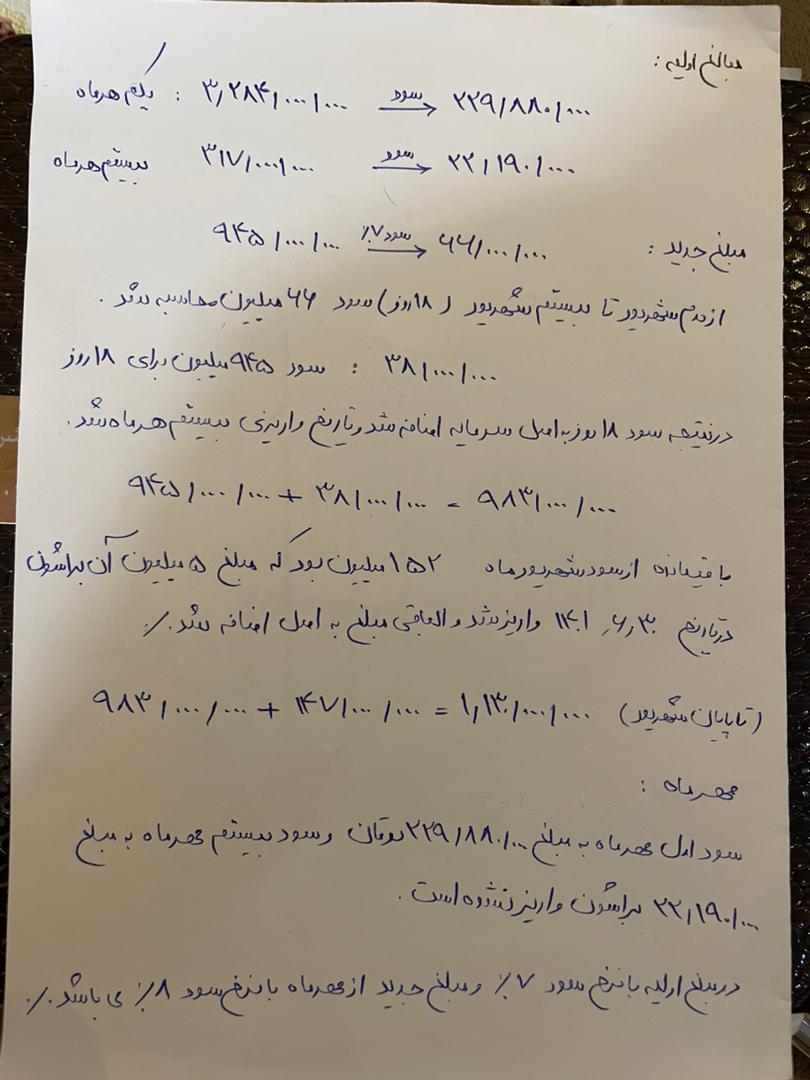 مبالغ اولیه :
یکم هرماه : ۳,۲۸۴/۰۰۰/۰۰۰ سود → ۲۲۹/۸۸۰/۰۰۰
بیستم هرماه ۳۱۷/۰۰۰/۰۰۰ سود → ۲۲,۱۹۰/۰۰۰
مبلغ جدید : ۹۴۵/۰۰۰/۰۰۰ سود ۷٪ → ۶۶/۰۰۰/۰۰۰
از دوم شهریور تا بیستم شهریور (۱۸ روز) سود ۶۶ میلیون محاسبه شد .
۳۸/۰۰۰/۰۰۰ : سود ۹۴۵ میلیون برای ۱۸ روز
درنتیجه سود ۱۸ روز به اصل سرمایه اضافه شد و تاریخ واریزی بیستم هرماه شد.
۹۴۵/۰۰۰/۰۰۰ + ۳۸/۰۰۰/۰۰۰ = ۹۸۳/۰۰۰/۰۰۰
باقیمانده از سود شهریورماه ۱۵۲ میلیون بود که مبلغ ۵ میلیون آن براشون
درتاریخ ۱۴۰۱,۶,۳۰ واریز شد و الباقی مبلغ به اصل اضافه شد ./.
(تا پایان شهریور) ۹۸۳/۰۰۰/۰۰۰ + ۱۴۷/۰۰۰/۰۰۰ = ۱,۱۳۰/۰۰۰/۰۰۰
مهرماه :
سود اول مهرماه به مبلغ ۲۲۹/۸۸۰/۰۰۰ تومان و سود بیستم مهرماه به مبلغ
۲۲,۱۹۰/۰۰۰ براشون واریز نشده است .
مبلغ اولیه با نرخ سود ۷٪ و مبلغ جدید از مهرماه با نرخ سود ۸٪ می باشد ./.